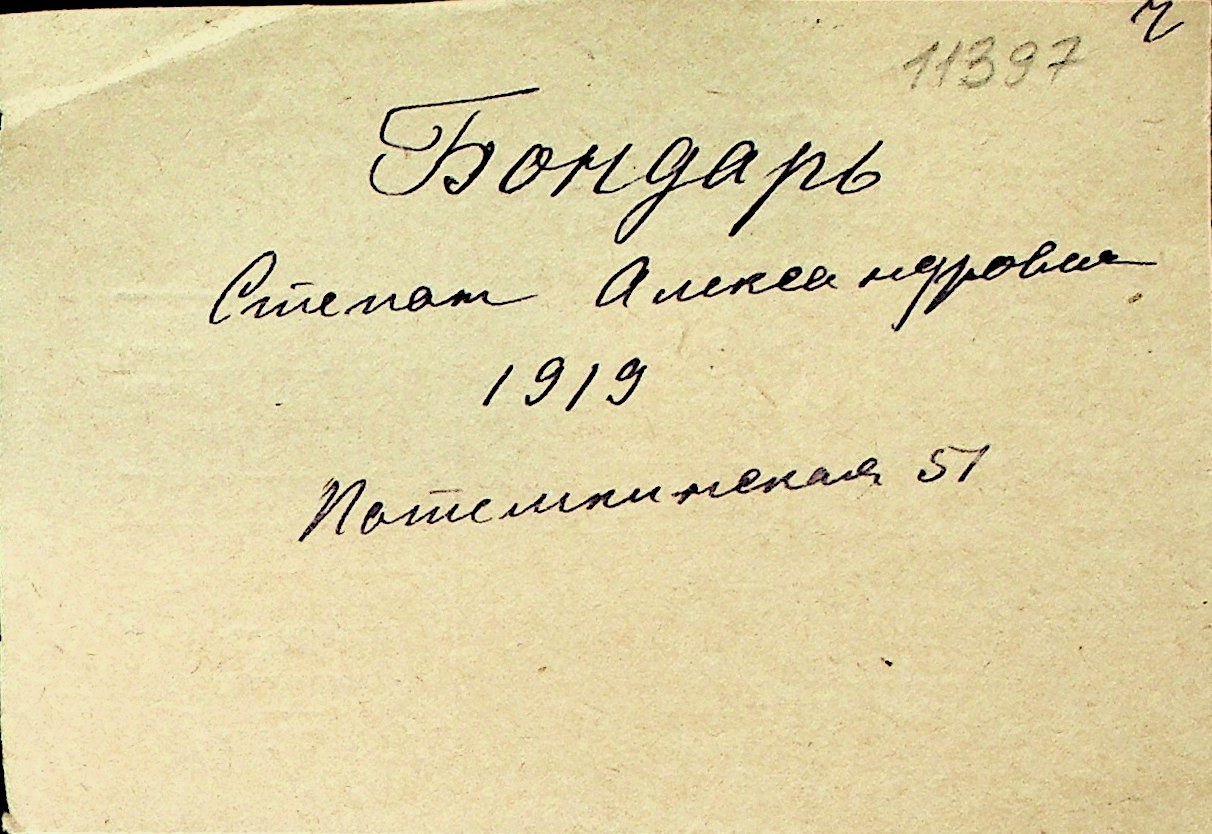 ч
11397
Бондарь
Степан Александрович
1919
Потемкинская 51